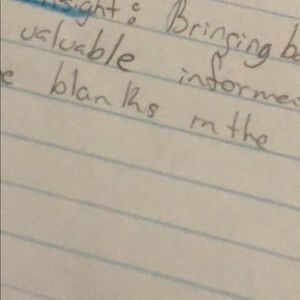 insight: Bringing b
valuable informe
e blanks in the